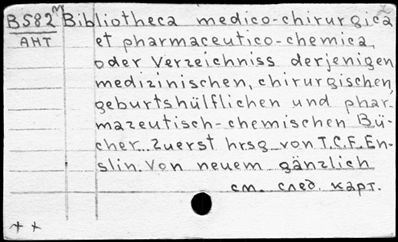 B582m Bibliotheca medico-chirurgica
АНТ et pharmaceutico-chemica
oder Verzeichniss derjenigen
medizinischen, chirurgischen,
geburtshülflichen und phar-
mazeutisch-chemischen Bü-
cher... Zuerst hrsg. von T.C.F. En-
slin. Von neuem gänzlich
см. след. карт.
**